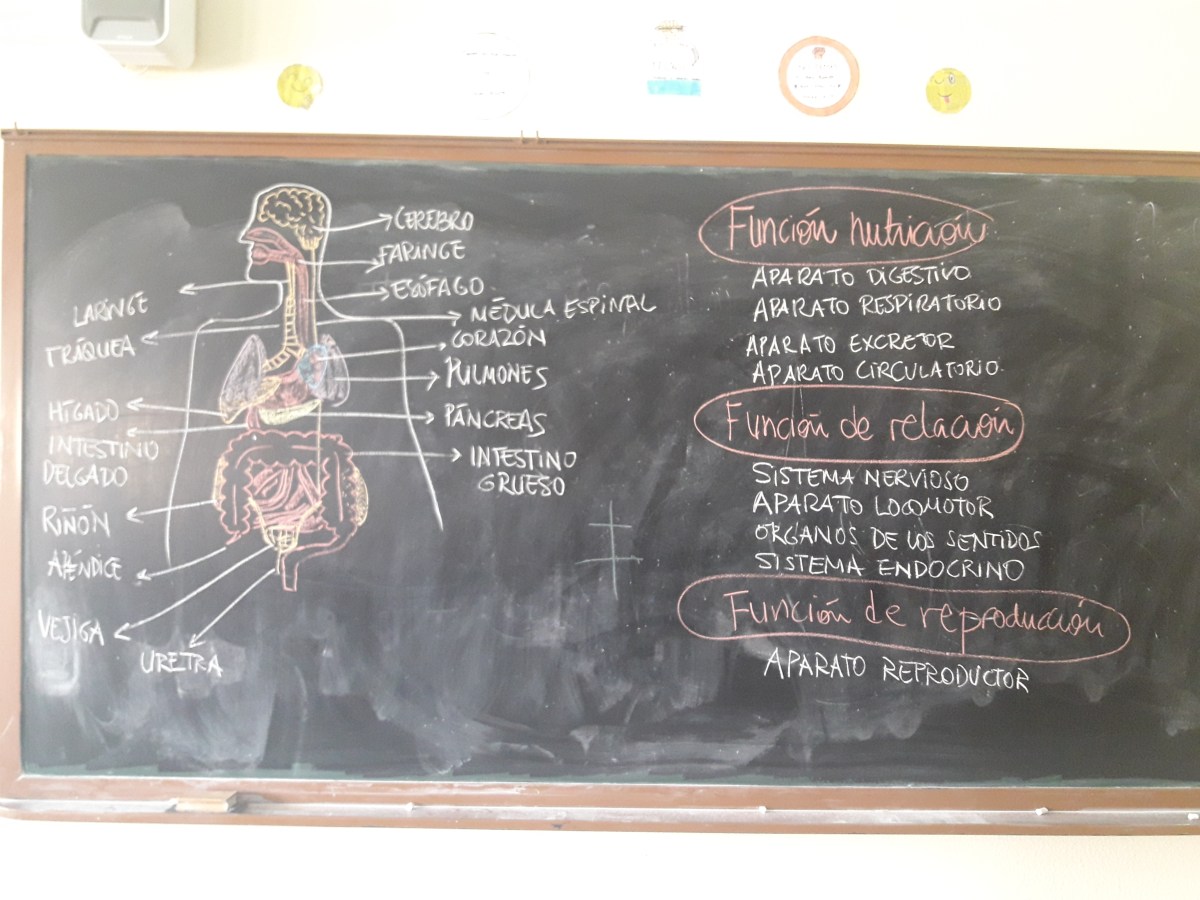 CEREBRO
FARINGE
ESÓFAGO
MÉDULA ESPINAL
CORAZÓN
PULMONES
PÁNCREAS
INTESTINO
GRUESO
LARINGE
TRÁQUEA
HÍGADO
INTESTINO
DELGADO
RIÑÓN
APÉNDICE
VEJIGA
URETRA
Función nutrición
APARATO DIGESTIVO
APARATO RESPIRATORIO
APARATO EXCRETOR
APARATO CIRCULATORIO
Función de relación
SISTEMA NERVIOSO
APARATO LOCOMOTOR
ÓRGANOS DE LOS SENTIDOS
SISTEMA ENDOCRINO
Función de reproducción
APARATO REPRODUCTOR